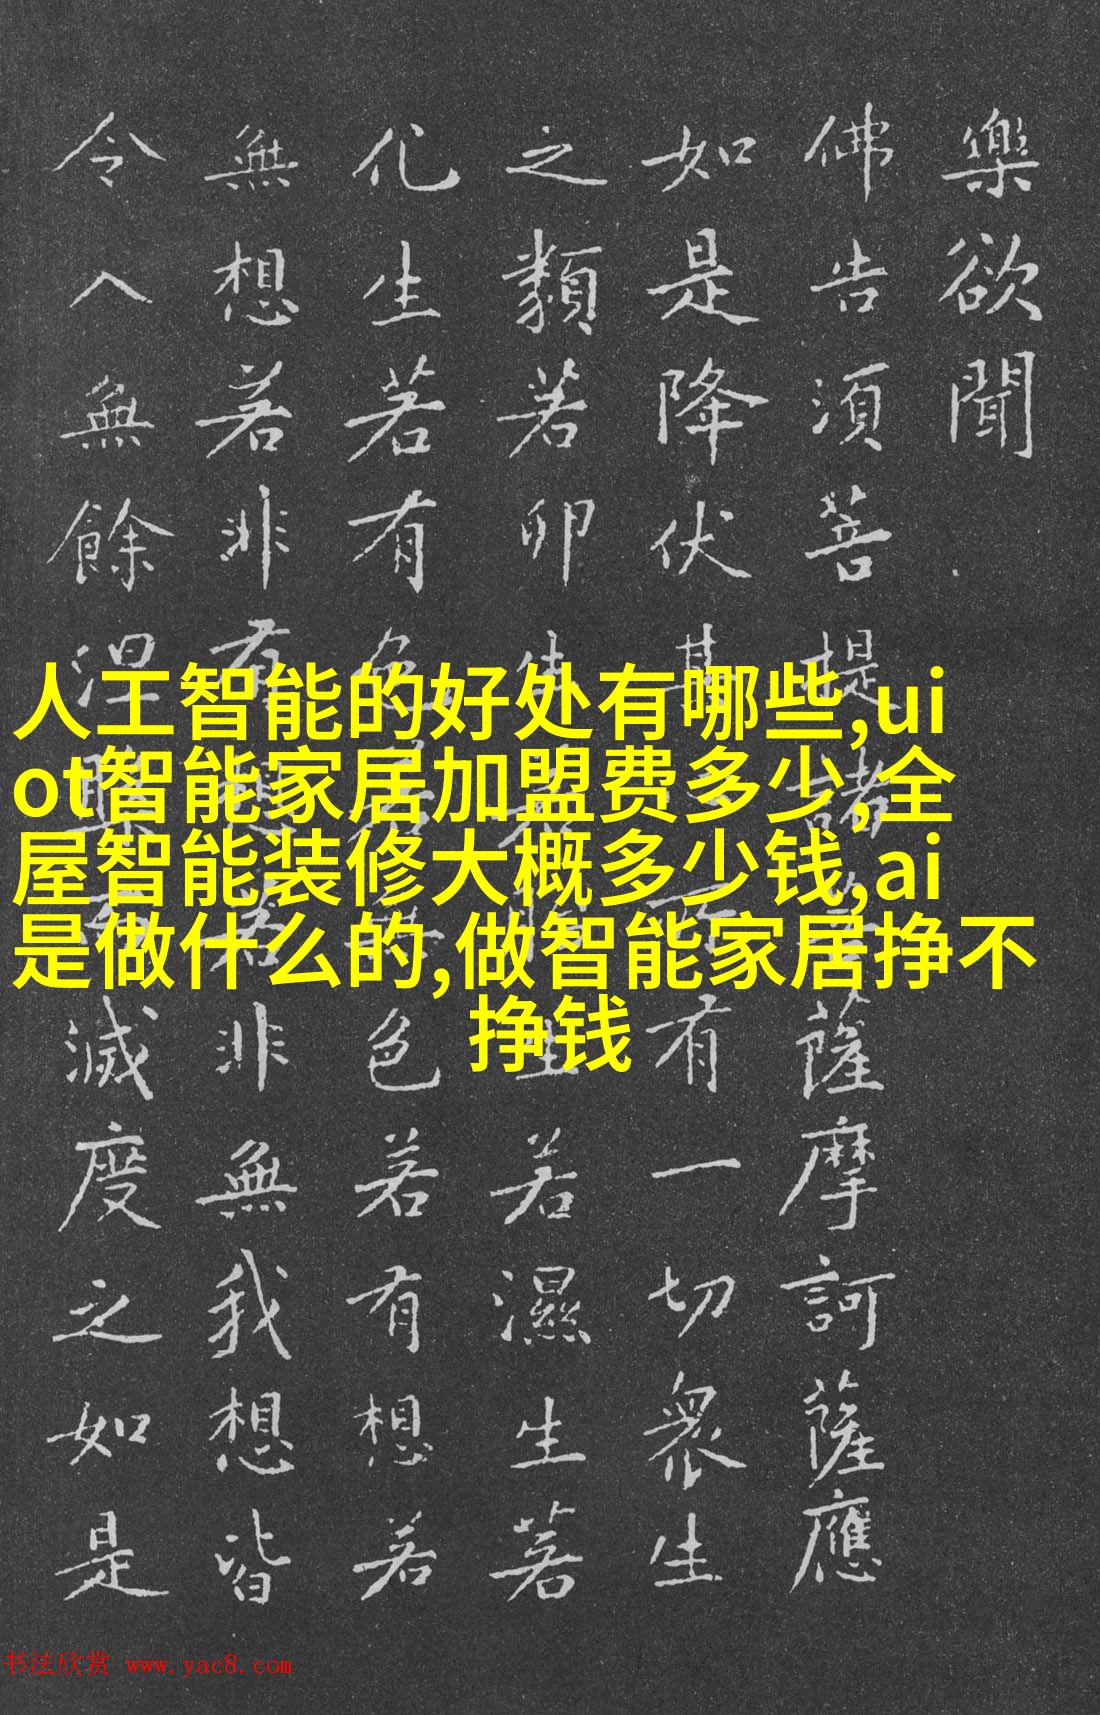 樂欲聞
佛告須菩提諸菩薩摩訶薩應
如是降伏其所有一切衆生
之類若卵生若胎生若濕生若
化生若有色若無色若有想若
無想若非有想若非無我想皆
令入無餘涅槃而滅度之如是
人工智能的好处有哪些,ui
ot智能家居加盟费多少,全
屋智能装修大概多少钱,ai
是做什么的,做智能家居挣不
挣钱
书法欣赏 www.yac8.com